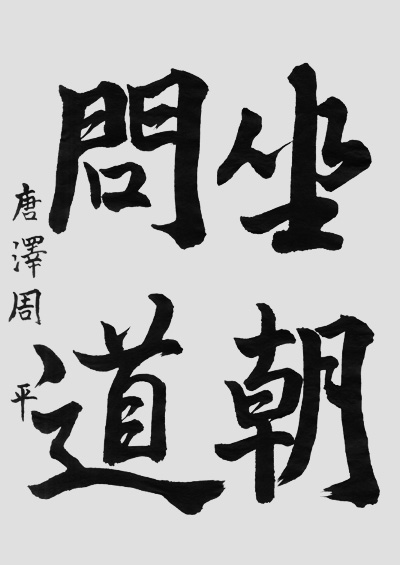 坐朝
問道
唐澤周平